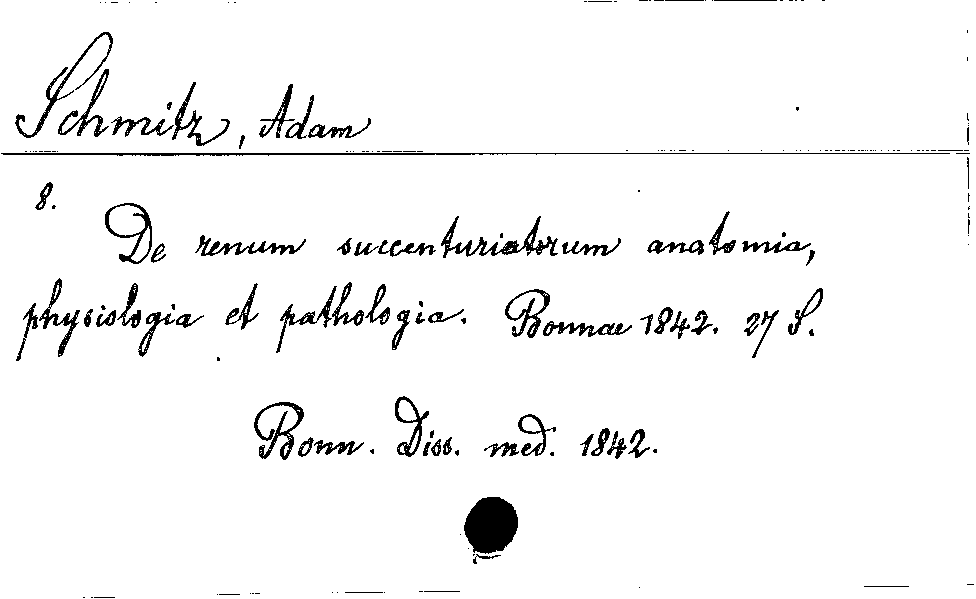 Schmitz, Adam
8.
De renum succenturiatorum anatomia,
physiologia et pathologia. Bonnae 1842. 27 S.
Bonn. Diss. med. 1842.